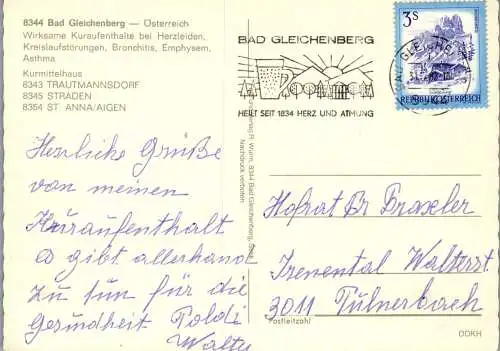 8344 Bad Gleichenberg — Österreich
Wirksame Kuraufenthalte bei Herzleiden,
Kreislaufstörungen, Bronchitis, Emphysem,
Asthma
Kurmittelhaus
8343 TRAUTMANNSDORF
8345 STRADEN
8354 ST. ANNA/AIGEN
Herzliche Grüße
von meinen
Kuraufenthalt
gibt allerhand
zu tun für die
Gesundheit Poldi
Walty
BAD GLEICHENBERG
HEILT SEIT 1834 HERZ UND ATMUNG
3 S
REPUBLIK ÖSTERREICH
BAD GLEICHENBERG
R. Wurm, 8344 Bad Gleichenberg
Nachdruck verboten
Hofrat Dr Draxler
Irenental Walterstr.
3011 Tulnerbach
Postleitzahl
ODKH